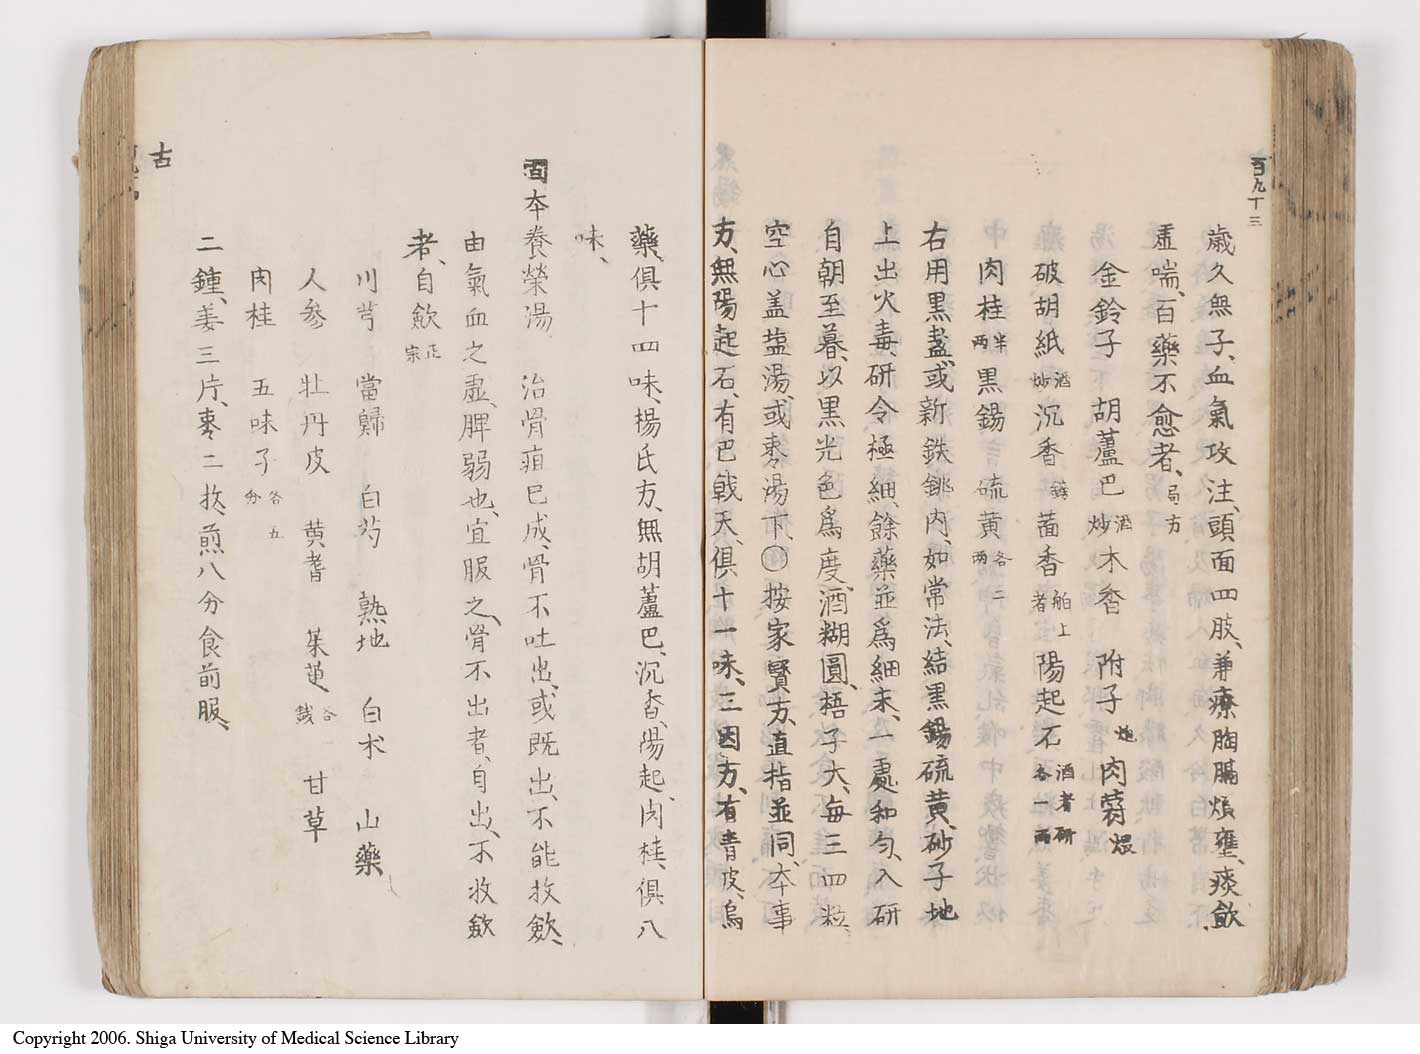 百九十三
歳久無子、血氣攻注、頭面四肢、兼療胸膈煩壅、痰飲、
虚喘、百藥不愈者、局方
金鈴子 胡蘆巴酒炒 木香 附子炮 肉蓯煨
破胡紙酒炒 沉香鎊 茴香舶上者 陽起石酒煮研各一兩
肉桂半兩 黒錫 硫黄各二兩
右用黒盞、或新鉄銚内、如常法、結黒錫硫黄、砂子地
上出火毒、研令極細、餘藥並爲細末、一處和勻、入研
自朝至暮、以黒光色爲度、酒糊圓、梧子大、毎三四粒
空心盖塩湯、或棗湯下、〇按家賢方、直指並同、本事
方、無陽起石、有巴戟天、俱十一味、三因方、有青皮、烏
藥、俱十四味、楊氏方、無胡蘆巴、沉香、陽起、肉桂、俱八
味、
固本養榮湯 治骨疽已成、骨不吐出、或既出、不能收歛、
由氣血之虚、脾弱也、宜服之、骨不出者、自出、不收歛
者、自歛正宗
川芎 當歸 白芍 熟地 白术 山藥
人参 牡丹皮 黄耆 各錢 甘草
肉桂 五味子各五分
二鍾、姜三片、棗二枚、煎八分食前服、
古